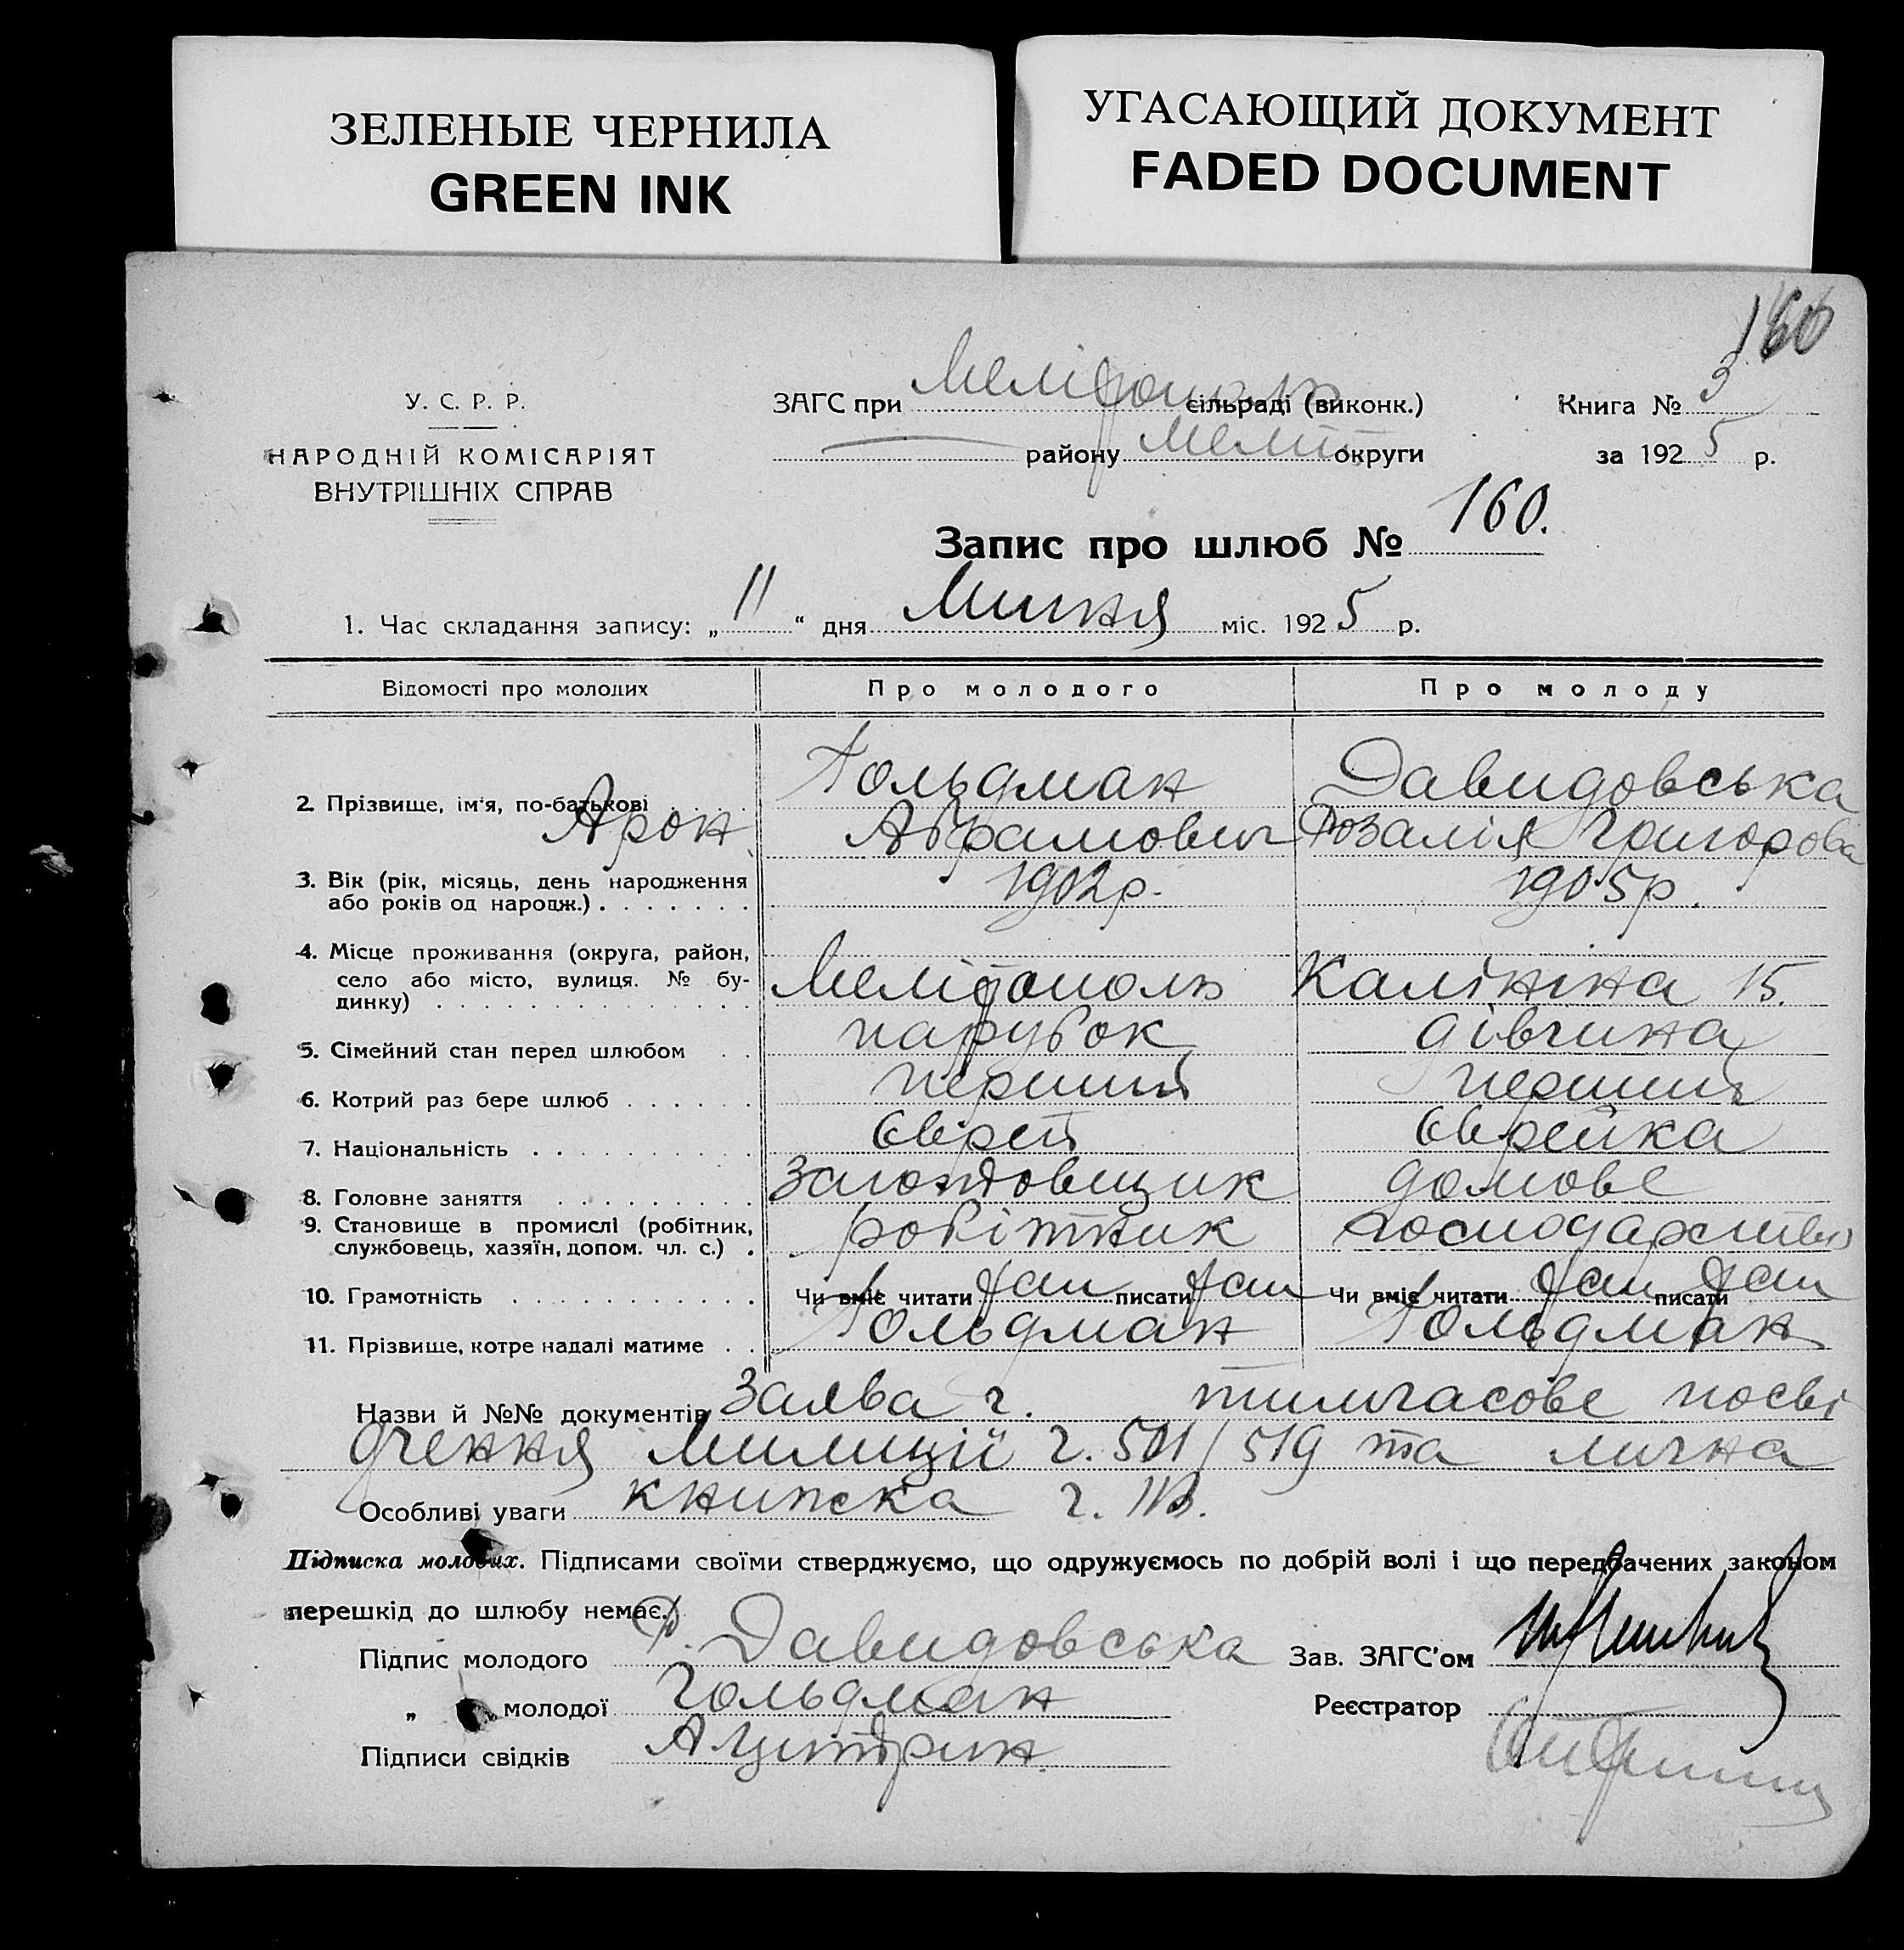 ЗЕЛЕНЫЕ ЧЕРНИЛА
GREEN INK
УГАСАЮЩИЙ ДОКУМЕНТ
FADED DOCUMENT
160
У. С. Р. Р.
НАРОДНІЙ КОМІСАРІЯТ
ВНУТРІШНІХ СПРАВ
ЗАГС при Мелітополь сільраді (виконк.)
району Меліт округи
Книга № 3
за 1925 р.
Запис про шлюб № 160.
1. Час складання запису: „11“ дня Липня міс. 1925 р.
Відомості про молодих Про молодого Про молоду
2. Прізвище, ім'я, по-батькові Гольдман Давидовська
Арон Абрамович Розалія Григорова
3. Вік (рік, місяць, день народження 1902р. 1905р.
або років од народж.)
4. Місце проживання (округа, район,
село або місто, вулиця. № бу- Мелітополь Калініна 15.
динку)
5. Сімейний стан перед шлюбом парубок дівчина
6. Котрий раз бере шлюб перший перший
7. Національність Єврей Єврейка
8. Головне заняття домове
9. Становище в промислі (робітник, робітник господарство
службовець, хазяїн, допом. чл. с.)
10. Грамотність Чи вміє читати так писати так Чи вміє читати так писати так
11. Прізвище, котре надалі матиме Гольдман Гольдман
Назви й №№ документів Заява г. тимчасове посві
дчення Милиції г. 501/519 та лична
Особливі уваги книжка г.
Підписка молодих. Підписами своїми стверджуємо, що одружуємось по добрій волі і що передбачених законом
перешкід до шлюбу немає.
Підпис молодого Р. Давидовська
„ „ молодої Гольдман
Підписи свідків А Цитрин.
Зав. ЗАГС'ом
Реєстратор